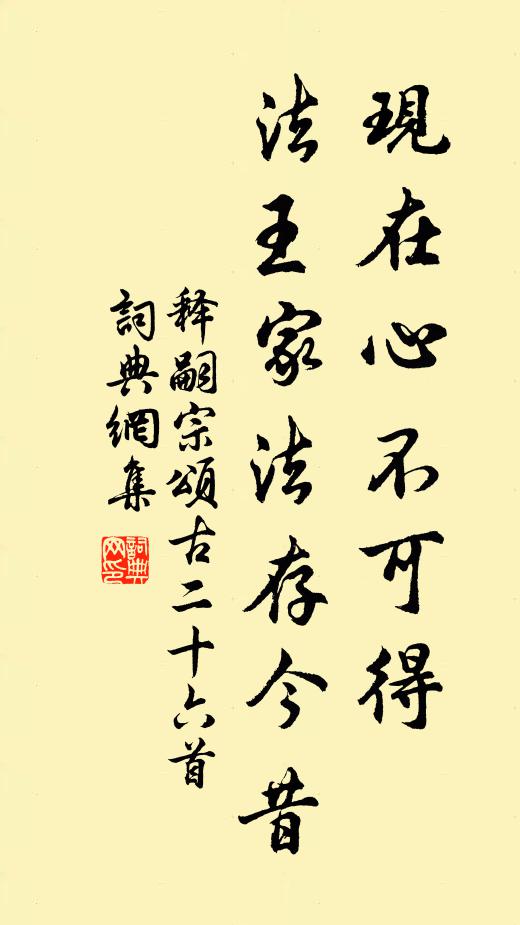 現在心不可得
法王家法存今昔
释嗣宗頌古二十六首
詞典網集
詞典网印